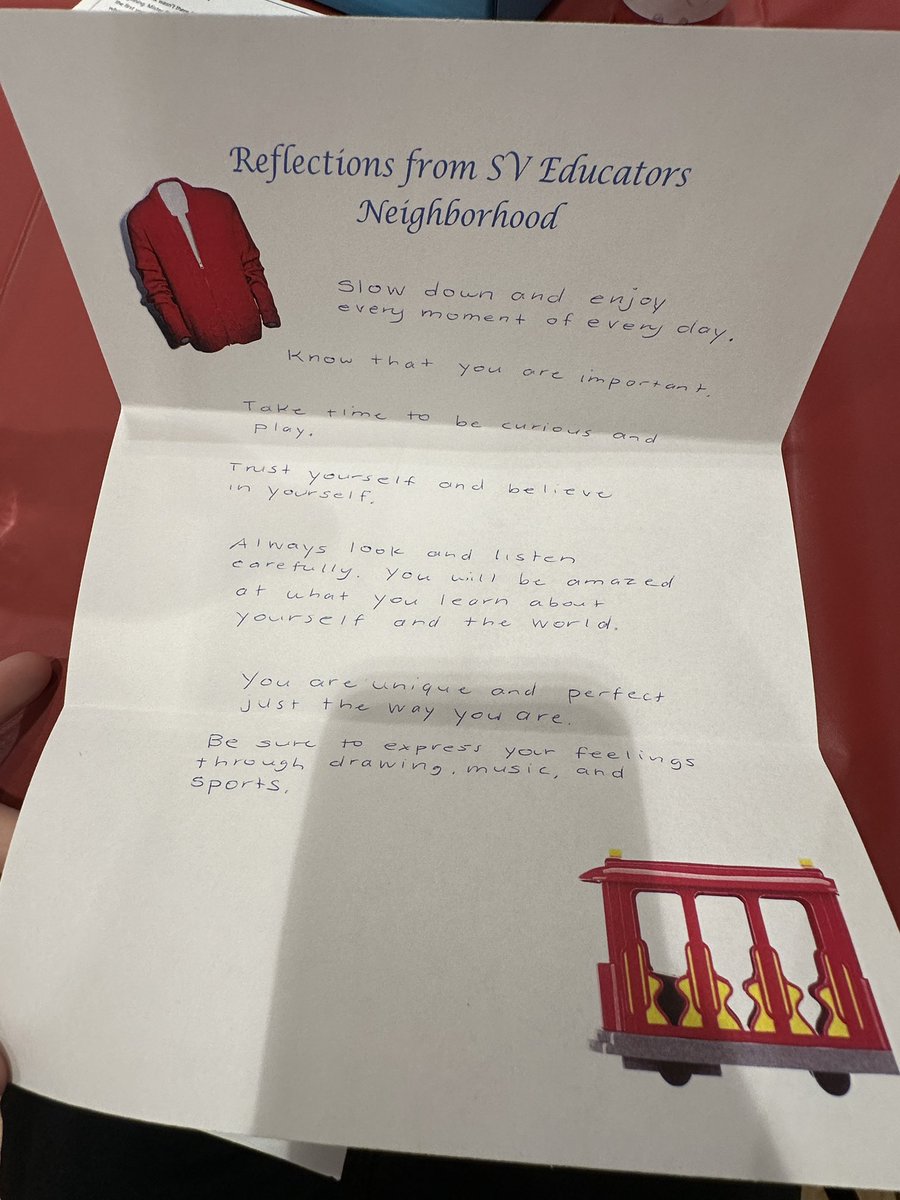 Reflections from SV Educators
Neighborhood
Slow down and enjoy
every moment of every day.
Know that you are important.
Take time to be curious and
play.
Trust yourself and believe
in yourself.
Always look and listen
carefully. You will be amazed
at what you learn about
yourself and the world.
You are unique and perfect
just the way you are.
Be sure to express your feelings
through drawing, music, and
sports.